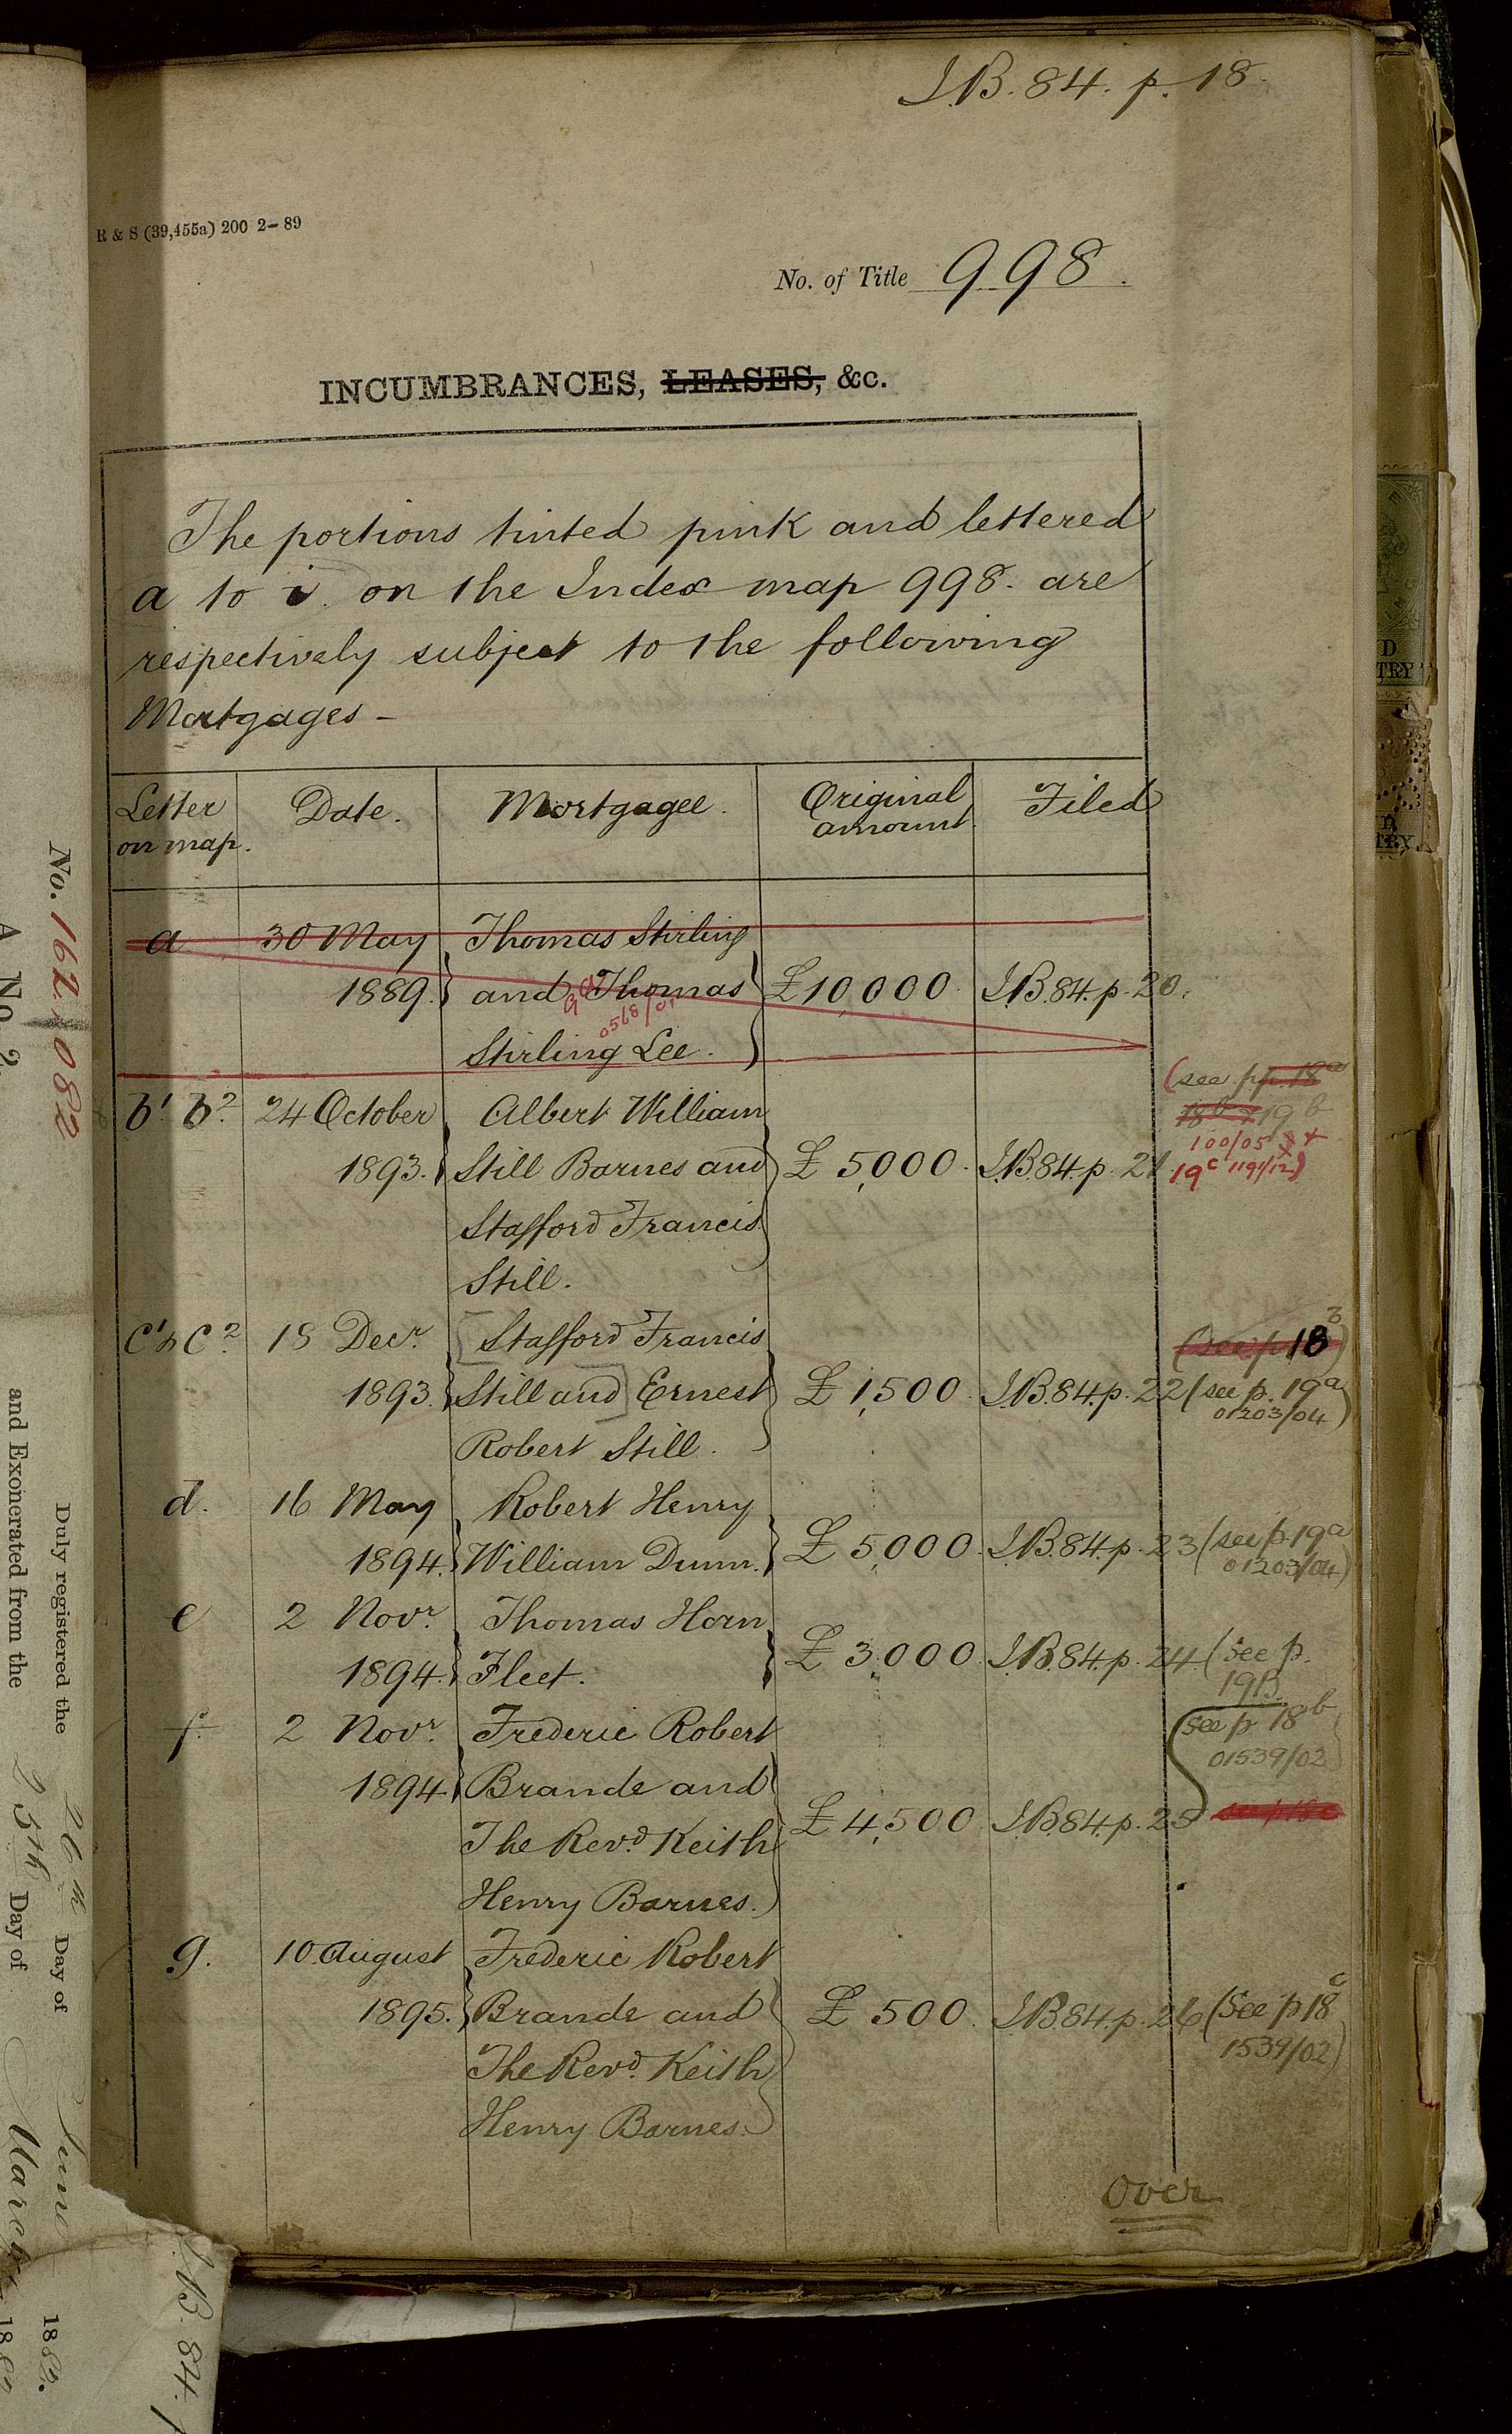 I.B. 84. p. 18.
R & S (39,455a) 200 2-89
No. of Title 998.
INCUMBRANCES, LEASES, &c.
The portions tinted pink and lettered
a to i. on the Index map 998. are
respectively subject to the following
Mortgages -
Letter on map. Date. Mortgagee. Original amount. Filed
a 30 May Thomas Stirling
1889. and Thomas £10,000. I.B. 84. p. 20.
0568/01
Stirling Lee.
(see pp. 18a
b1 b2 24 October Albert William 18b & 19b
100/05
1893. Still Barnes and £ 5,000. I.B. 84. p. 21. 19c 1191/12)
Stafford Francis
Still.
c1 & c2 18 Decr. Stafford Francis (see p 18B)
1893. Still and Ernest £ 1,500. I.B. 84. p. 22 (see p. 19a
01203/04)
Robert Still.
d. 16 May Robert Henry
1894. William Dunn. £ 5,000. I.B. 84. p. 23 (see p. 19a
01203/04)
e 2 Novr. Thomas Horn
1894. Fleet. £ 3,000. I.B. 84. p. 24. (see p.
19B.
f. 2 Novr. Frederic Robert see p 18b
01539/02
1894. Brande and
The Revd. Keith £ 4,500. I.B. 84. p. 25
Henry Barnes.
g. 10 August Frederic Robert
1895. Brande and £ 500. I.B. 84. p. 26. (See p 18c
1539/02)
The Revd. Keith
Henry Barnes.
Over
No. 162.082
A No 2.
Duly registered the 26th Day of June 1882.
and Exonerated from the 25th Day of March 188
I.B. 84. p